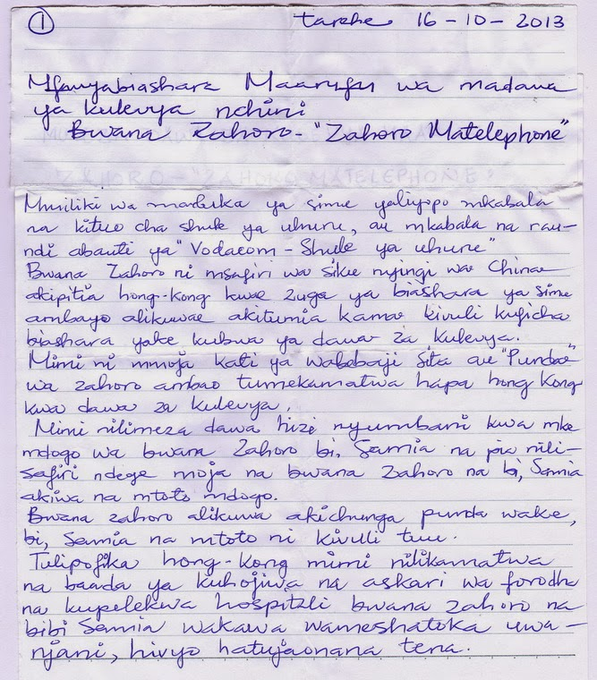 1 tarehe 16-10-2013
Mfanyabiashara Maarufu wa madawa
ya kulevya nchini
Bwana Zahoro - "Zahoro Matelephone"
ZAHORO - "ZAHORO MATELEPHONE"
Mmiliki wa maduka ya simu yaliyopo mkabala
na kituo cha shule ya uhuru, au mkabala na rau-
ndi abauti ya "Vodacom - Shule ya uhuru"
Bwana Zahoro ni msafiri wa siku nyingi wa China
akipitia hong-kong kwa zuga ya biashara ya simu
ambayo alikuwa akitumia kama kivuli kuficha
biashara yake kubwa ya dawa za kulevya.
Mimi ni mmoja kati ya wabebaji sita au "Punda"
wa zahoro ambao tumekamatwa hapa hong Kong
kwa dawa za kulevya.
Mimi nilimeza dawa hizi nyumbani kwa mke
mdogo wa bwana Zahoro bi. Samia na pia nili-
safiri ndege moja na bwana Zahoro na bi, Samia
akiwa na mtoto mdogo.
Bwana zahoro alikuwa akichunga punda wake,
bi, Samia na mtoto ni kivuli tuu.
Tulipofika hong-kong mimi nilikamatwa
na baada ya kuhojiwa na askari wa forodha
na kupelekwa hospitali bwana zahoro na
bibi Samia wakawa wameshatoka uwa-
njani, hivyo hatujaonana tena.